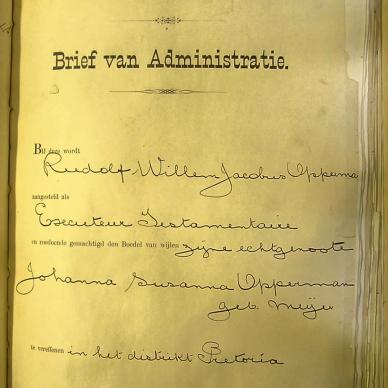 Brief van Administratie.
Bij deze wordt
Rudolf Willem Jacobus Opperma
aangesteld als
Executeur Testamentaire
en zoodoende gemachtigd den Boedel van wijlen zijne echtgenoote
Johanna Susanna Opperman
geb. Meijer
te vereffenen in het distrikt Pretoria